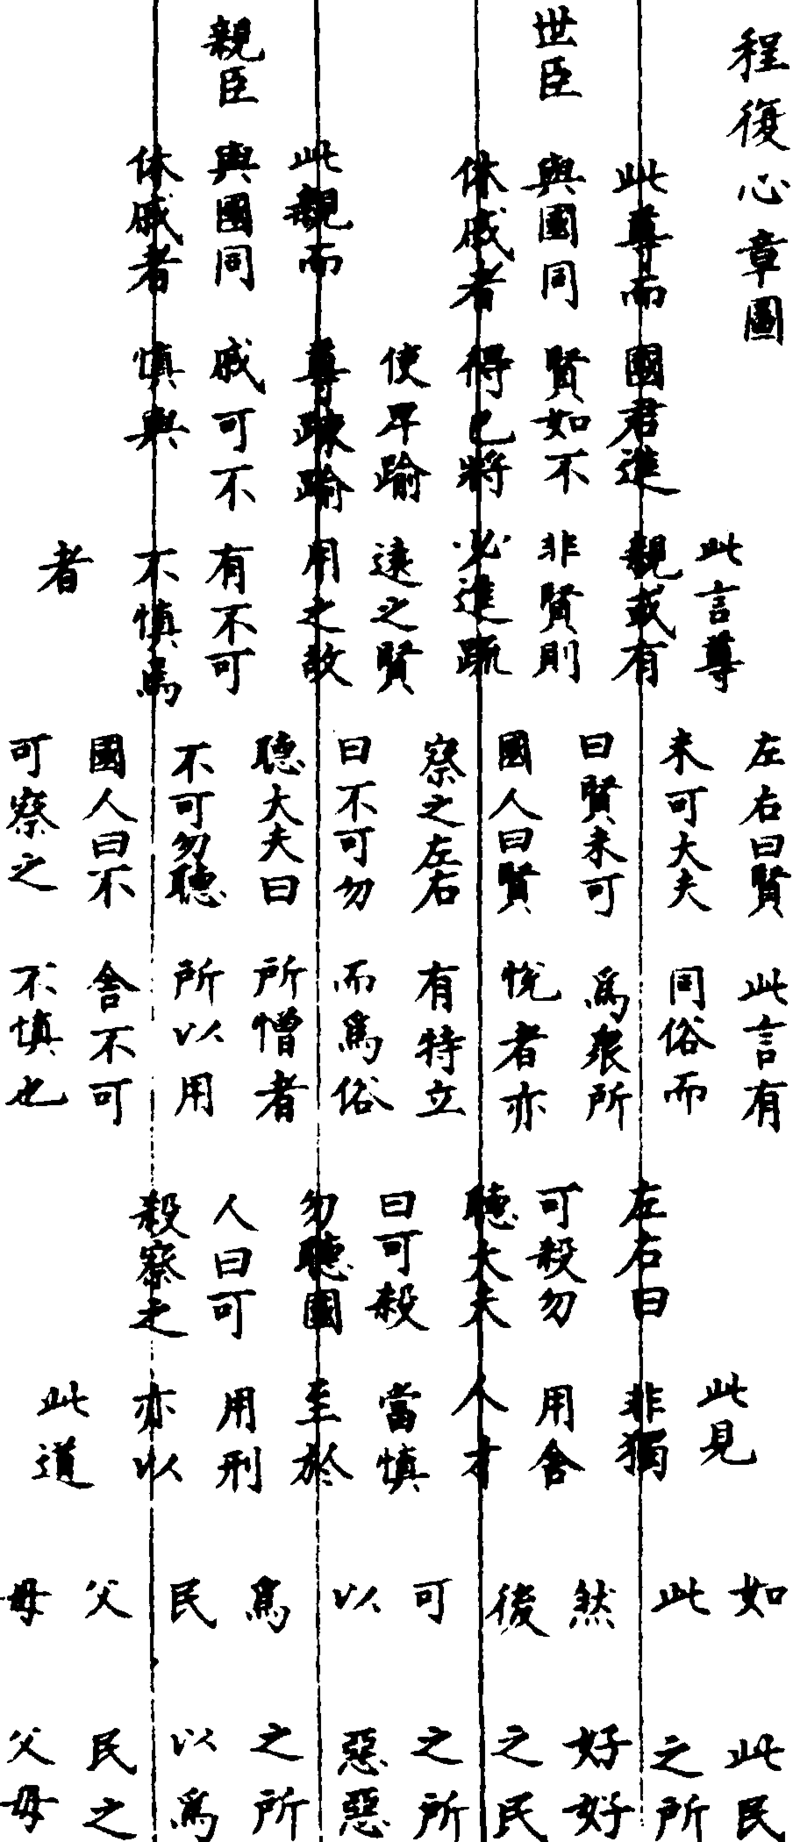 程復心章圖
世臣
此尊而
與國同
休戚者
親臣
此親而
與國同
休戚者
國君進
賢如不
得已將
使卑踰
尊踈踰
戚可不
慎與
此言尊
親或有
非賢則
必進疏
遠之賢
用之故
有不可
不慎焉
者
左右曰賢
未可大夫
曰賢未可
國人曰賢
察之左右
曰不可勿
聽大夫曰
不可勿聽
國人曰不
可察之
此言有
同俗而
爲衆所
悅者亦
有特立
而爲俗
所憎者
所以用
舍不可
不慎也
左右曰
可殺勿
聽大夫
曰可殺
勿聽國
人曰可
殺察之
此見
非獨
用舍
人才
當慎
至於
用刑
亦以
此道
如此然後可以爲民父母
此民
之所
好好
之民
之所
惡惡
之所
以爲
民之
父母